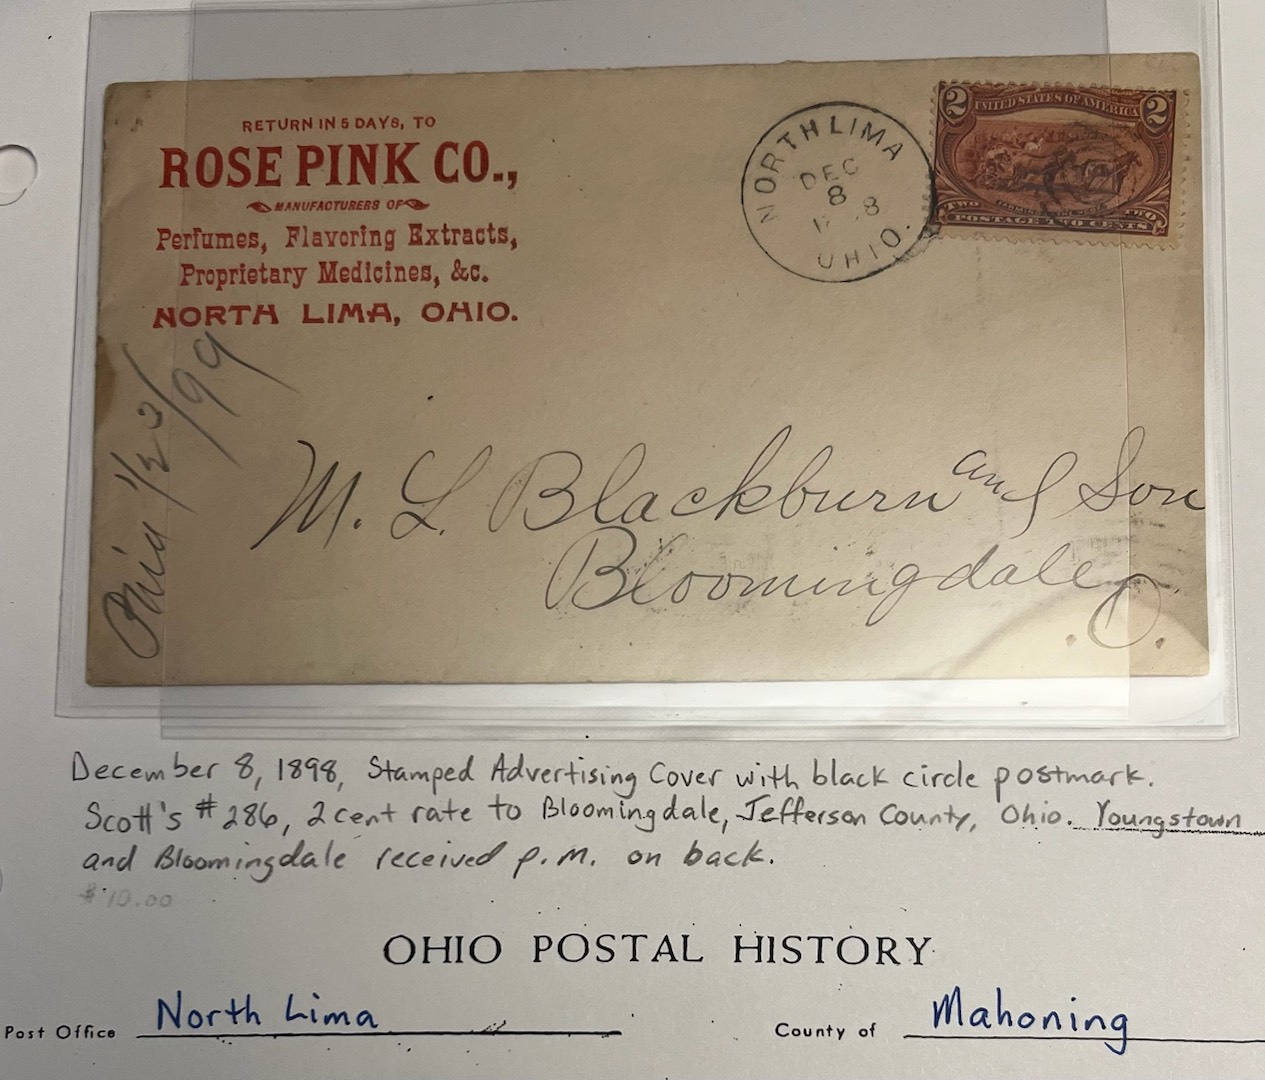 RETURN IN 5 DAYS, TO
ROSE PINK CO.,
MANUFACTURERS OF
Perfumes, Flavoring Extracts,
Proprietary Medicines, &c.
NORTH LIMA, OHIO.
NORTH LIMA
DEC
8
8
OHIO.
2 UNITED STATES OF AMERICA 2
TWO TWO
POSTAGE TWO CENTS
1/20/99
M. L. Blackburn and Son
Bloomingdale,
O.
December 8, 1898, Stamped Advertising Cover with black circle postmark.
Scott's #286, 2 cent rate to Bloomingdale, Jefferson County, Ohio. Youngstown
and Bloomingdale received p.m. on back.
$10.00
OHIO POSTAL HISTORY
Post Office North Lima County of Mahoning